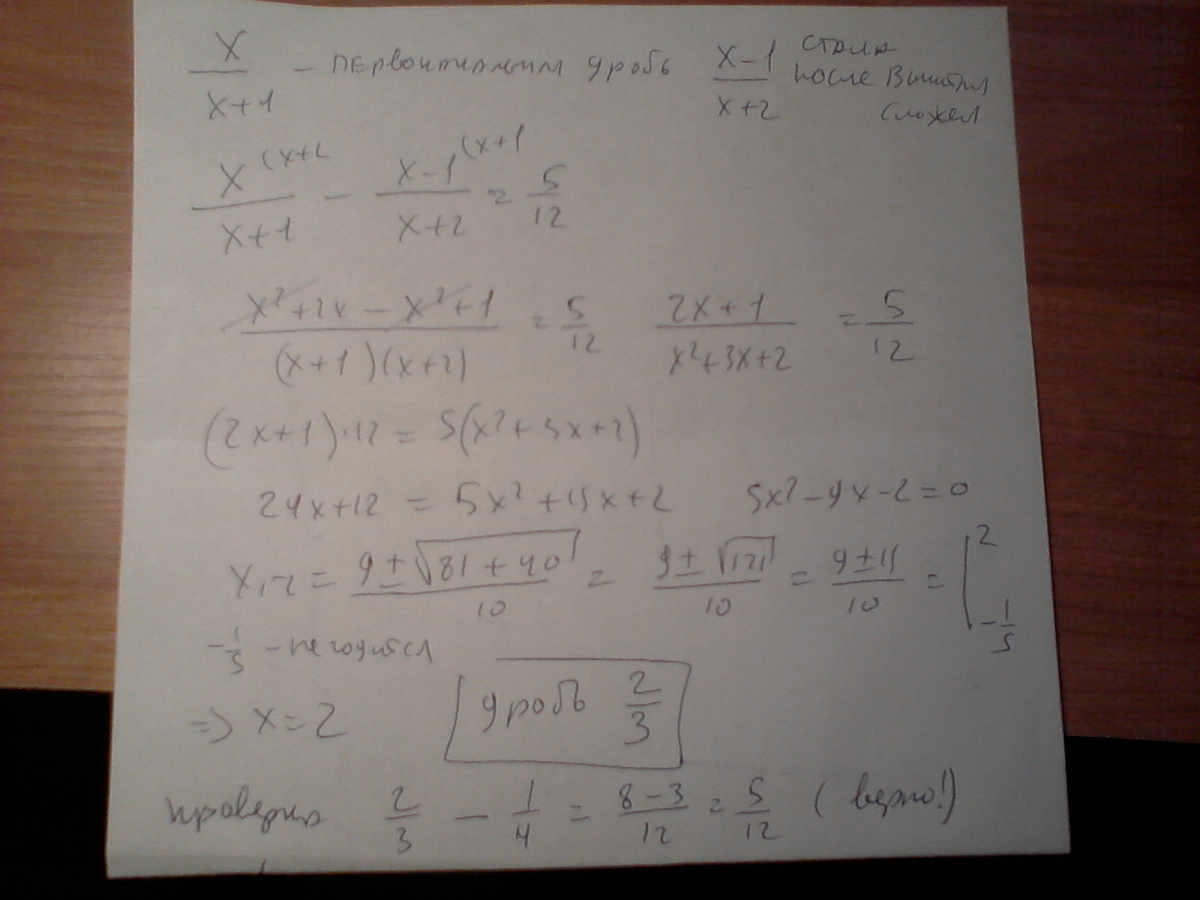 x/(x+1) – первоначальная дробь (x–1)/(x+2) стала после вычитан сложен
x (x+2 / (x+1) – x–1 (x+1 / (x+2) = 5/12
(x²+2x – x²+1)/((x+1)(x+2)) = 5/12 (2x+1)/(x²+3x+2) = 5/12
(2x+1)·12 = 5(x²+3x+2)
24x+12 = 5x²+15x+2 5x²–9x–2=0
x₁,₂ = (9±√(81+40))/10 = (9±√121)/10 = (9±11)/10 = [2 –1/5
–1/5 – не годится
=> x=2 дробь 2/3
проверка 2/3 – 1/4 = (8–3)/12 = 5/12 (верно!)